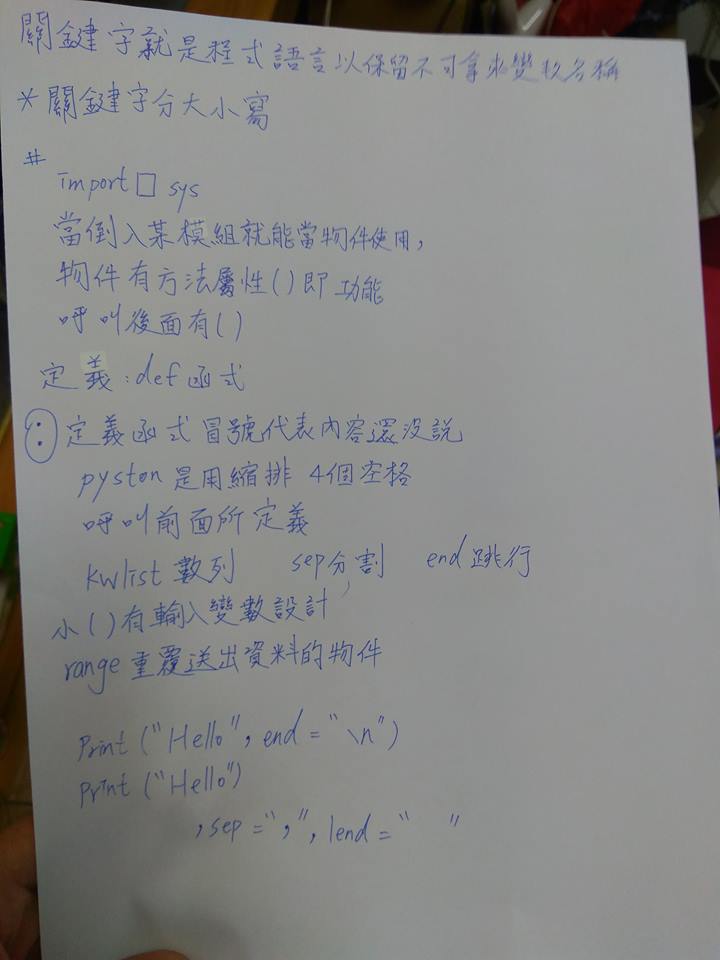 關鍵字就是程式語言以保留不可拿來變數名稱
*關鍵字分大小寫
#
import□ sys
當倒入某模組就能當物件使用,
物件有方法屬性()即功能
呼叫後面有()
定義:def函式
: 定義函式冒號代表內容還没說
pyston 是用縮排 4個空格
呼叫前面所定義
kwlist 數列 sep分割 end 跳行
小()有輸入變數設計
range 重覆送出資料的物件
print ("Hello", end = "\n")
print ("Hello")
, sep = ",", lend = " "